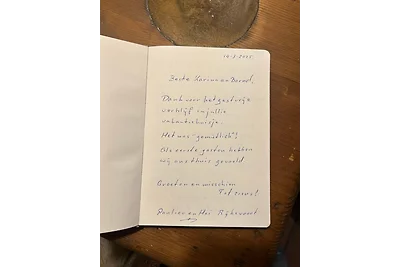 10-5-2025.
Beste Karin en Bernd,
Dank voor het gastvrije
verblijf in jullie
vakantiehuisje.
Het was "gemütlich"!
Als eerste gasten hebben
wij ons thuis gevoeld
Groeten en misschien
Tot ziens!
en Rijkevoort